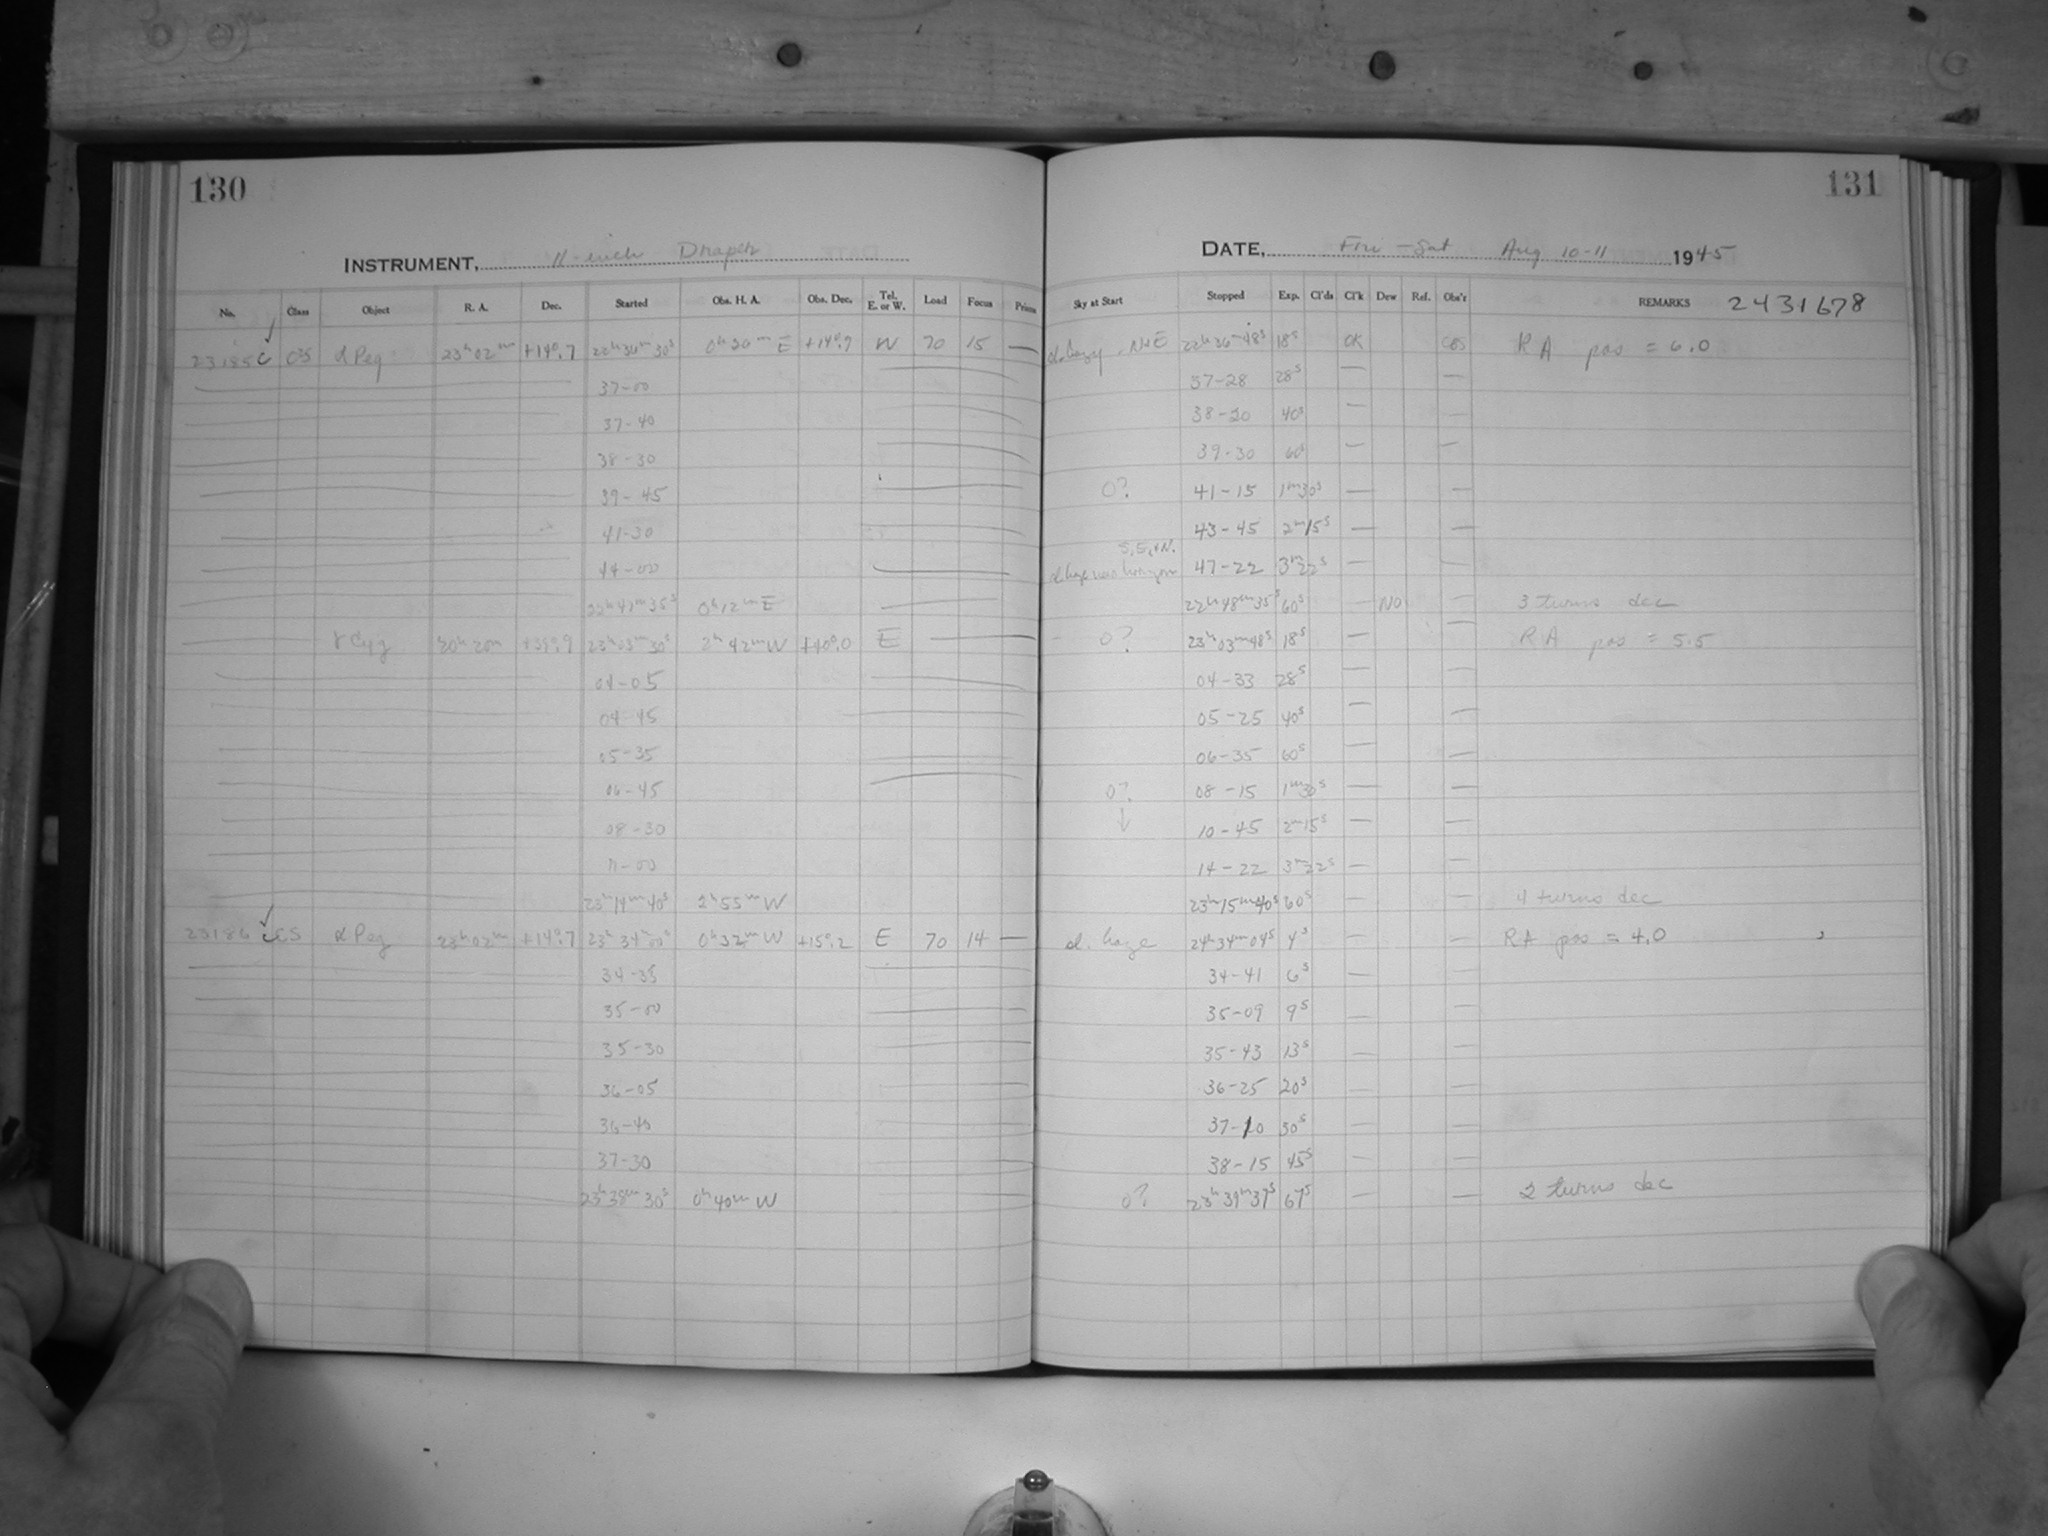 130
INSTRUMENT, 11-inch Draper
No. Class Object R. A. Dec. Started Obs. H. A. Obs. Dec. Tel. E. or W. Load Focus Prism
23185 C α Peg 23h02m +14°.7 22h36m30s 0h20m E +14°.9 W 70 15 —
37-00
37-40
38-30
39-45
41-30
44-00
22h47m35s 0h12m E
γ Cyg 20h20m +39°.9 23h03m30s 2h42m W +40°.0 E
04-05
04-45
05-35
06-45
08-30
11-00
23h14m40s 2h55m W
23186 α Peg 23h02m +14°.7 23h34m00s 0h32m W +15°.2 E 70 14 —
34-35
35-00
35-30
36-05
36-40
37-30
23h38m30s 0h40m W
131
DATE, Fri - Sat Aug 10-11 1945
Sky at Start Stopped Exp. Cl'ds Cl'k Dew Ref. Obs'r REMARKS 2431678
22h36m48s 18s OK RA pos = 6.0
37-28 28s — —
38-20 40s — —
39-30 60s — —
0? 41-15 1m30s — —
43-45 2m15s — —
S, E, + N.
47-22 3m22s — —
22h48m35s 60s — NO — 3 turns dec
0? 23h03m48s 18s — — RA pos = 5.5
04-33 28s — —
05-25 40s — —
06-35 60s — —
0? 08-15 1m30s — —
↓ 10-45 2m15s — —
14-22 3m22s — —
23h15m40s 60s — — 4 turns dec
haze 24h34m04s 4s — — RA pos = 4.0
34-41 6s — —
35-09 9s — —
35-43 13s — —
36-25 20s — —
37-10 30s — —
38-15 45s — —
0? 23h39m37s 67s — — 2 turns dec